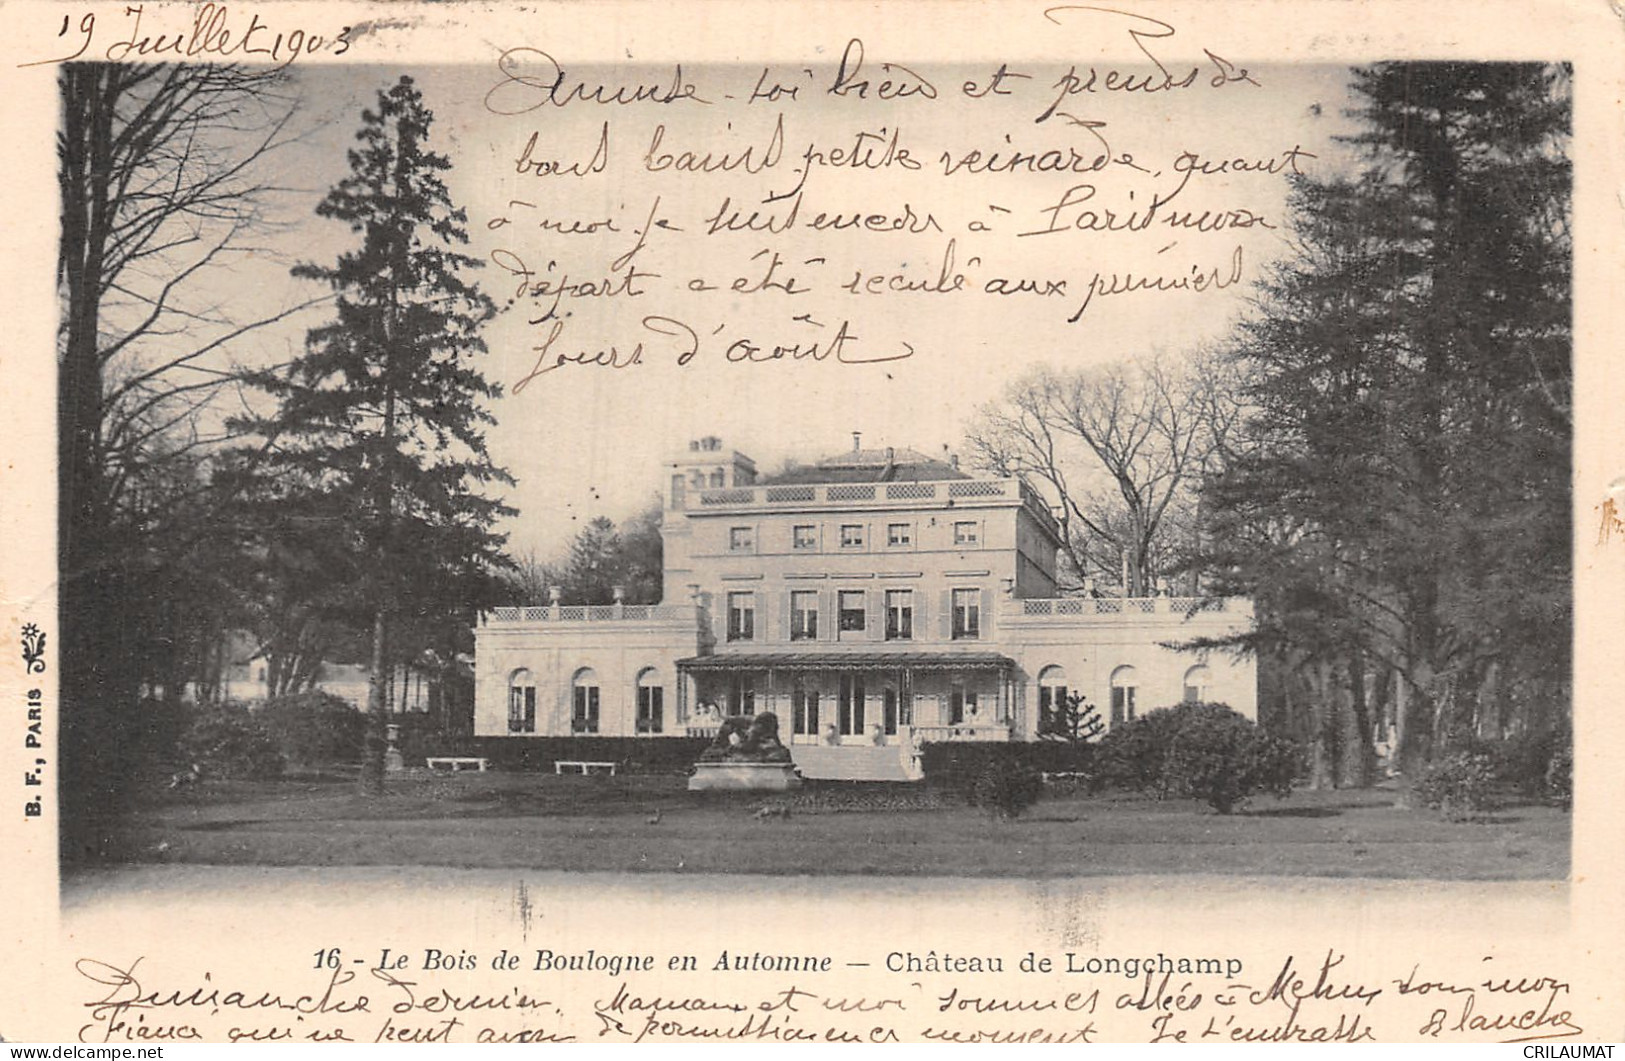 19 Juillet 1903
Amuse-toi bien et prends de
bons bains petite veinarde, quant
à moi je suis encor à Paris mon
départ a été reculé aux premiers
jours d'août
B. F., PARIS
16 - Le Bois de Boulogne en Automne — Château de Longchamp
Dimanche dernier, Maman et moi sommes allées à voir mon
Fiancé qui ne peut avoir de permission en ce moment Je t'embrasse Blanche
CRILAUMAT